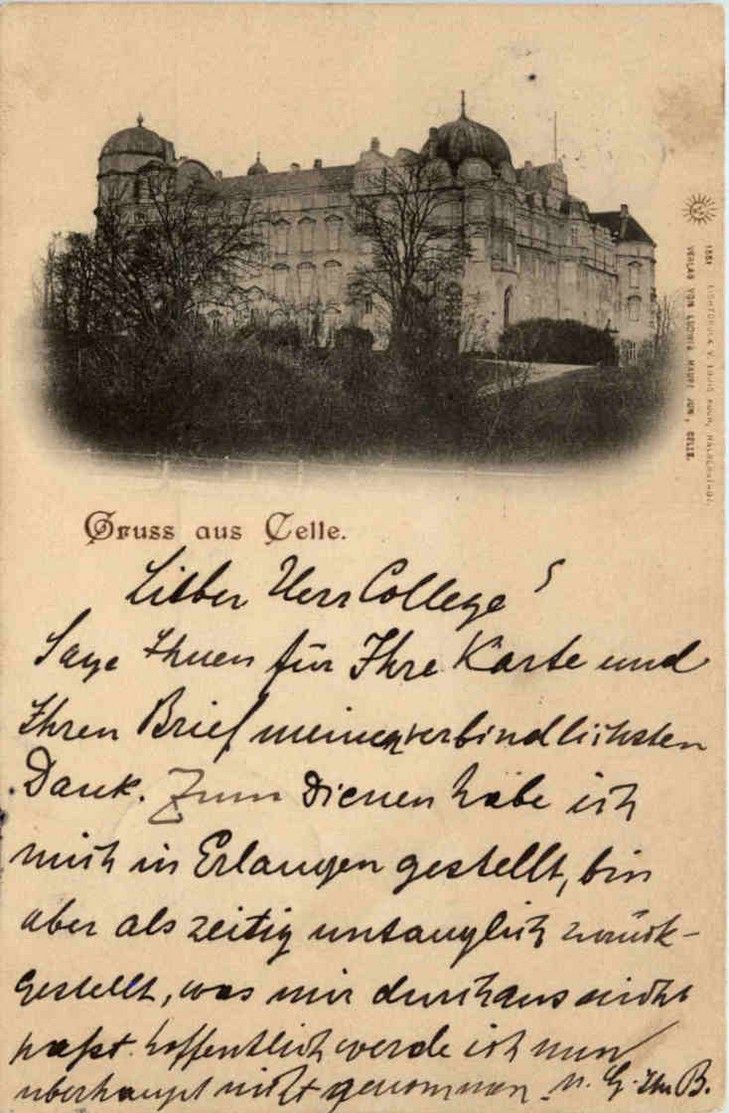 LICHTDRUCK V. LOUIS KOCH, HALBERSTADT.
VERLAG VON LUDWIG MAUPE JUN., CELLE.
Gruss aus Celle.
Lieber Herr College!
Sage Ihnen für Ihre Karte und
Ihren Brief meinen verbindlichsten
Dank. Zum Dienen habe ich
mich in Erlangen gestellt, bin
aber als zeitig untauglich zurück-
gestellt, was mir durchaus nicht
paßt. hoffentlich werde ich nun
überhaupt nicht genommen. M. G. Ihr B.